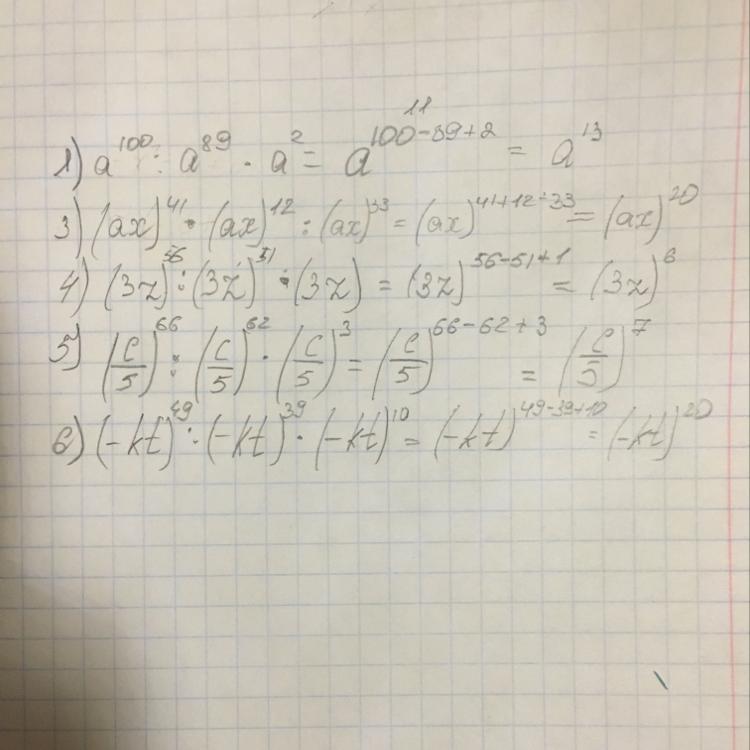 1) a^100 : a^89 · a^2 = a^(100-89+2) = a^13
11
3) (ax)^41 · (ax)^12 : (ax)^33 = (ax)^(41+12-33) = (ax)^20
4) (3z)^56 : (3z)^51 · (3z) = (3z)^(56-51+1) = (3z)^6
5) (c/5)^66 : (c/5)^62 · (c/5)^3 = (c/5)^(66-62+3) = (c/5)^7
6) (-kt)^49 : (-kt)^39 · (-kt)^10 = (-kt)^(49-39+10) = (-kt)^20